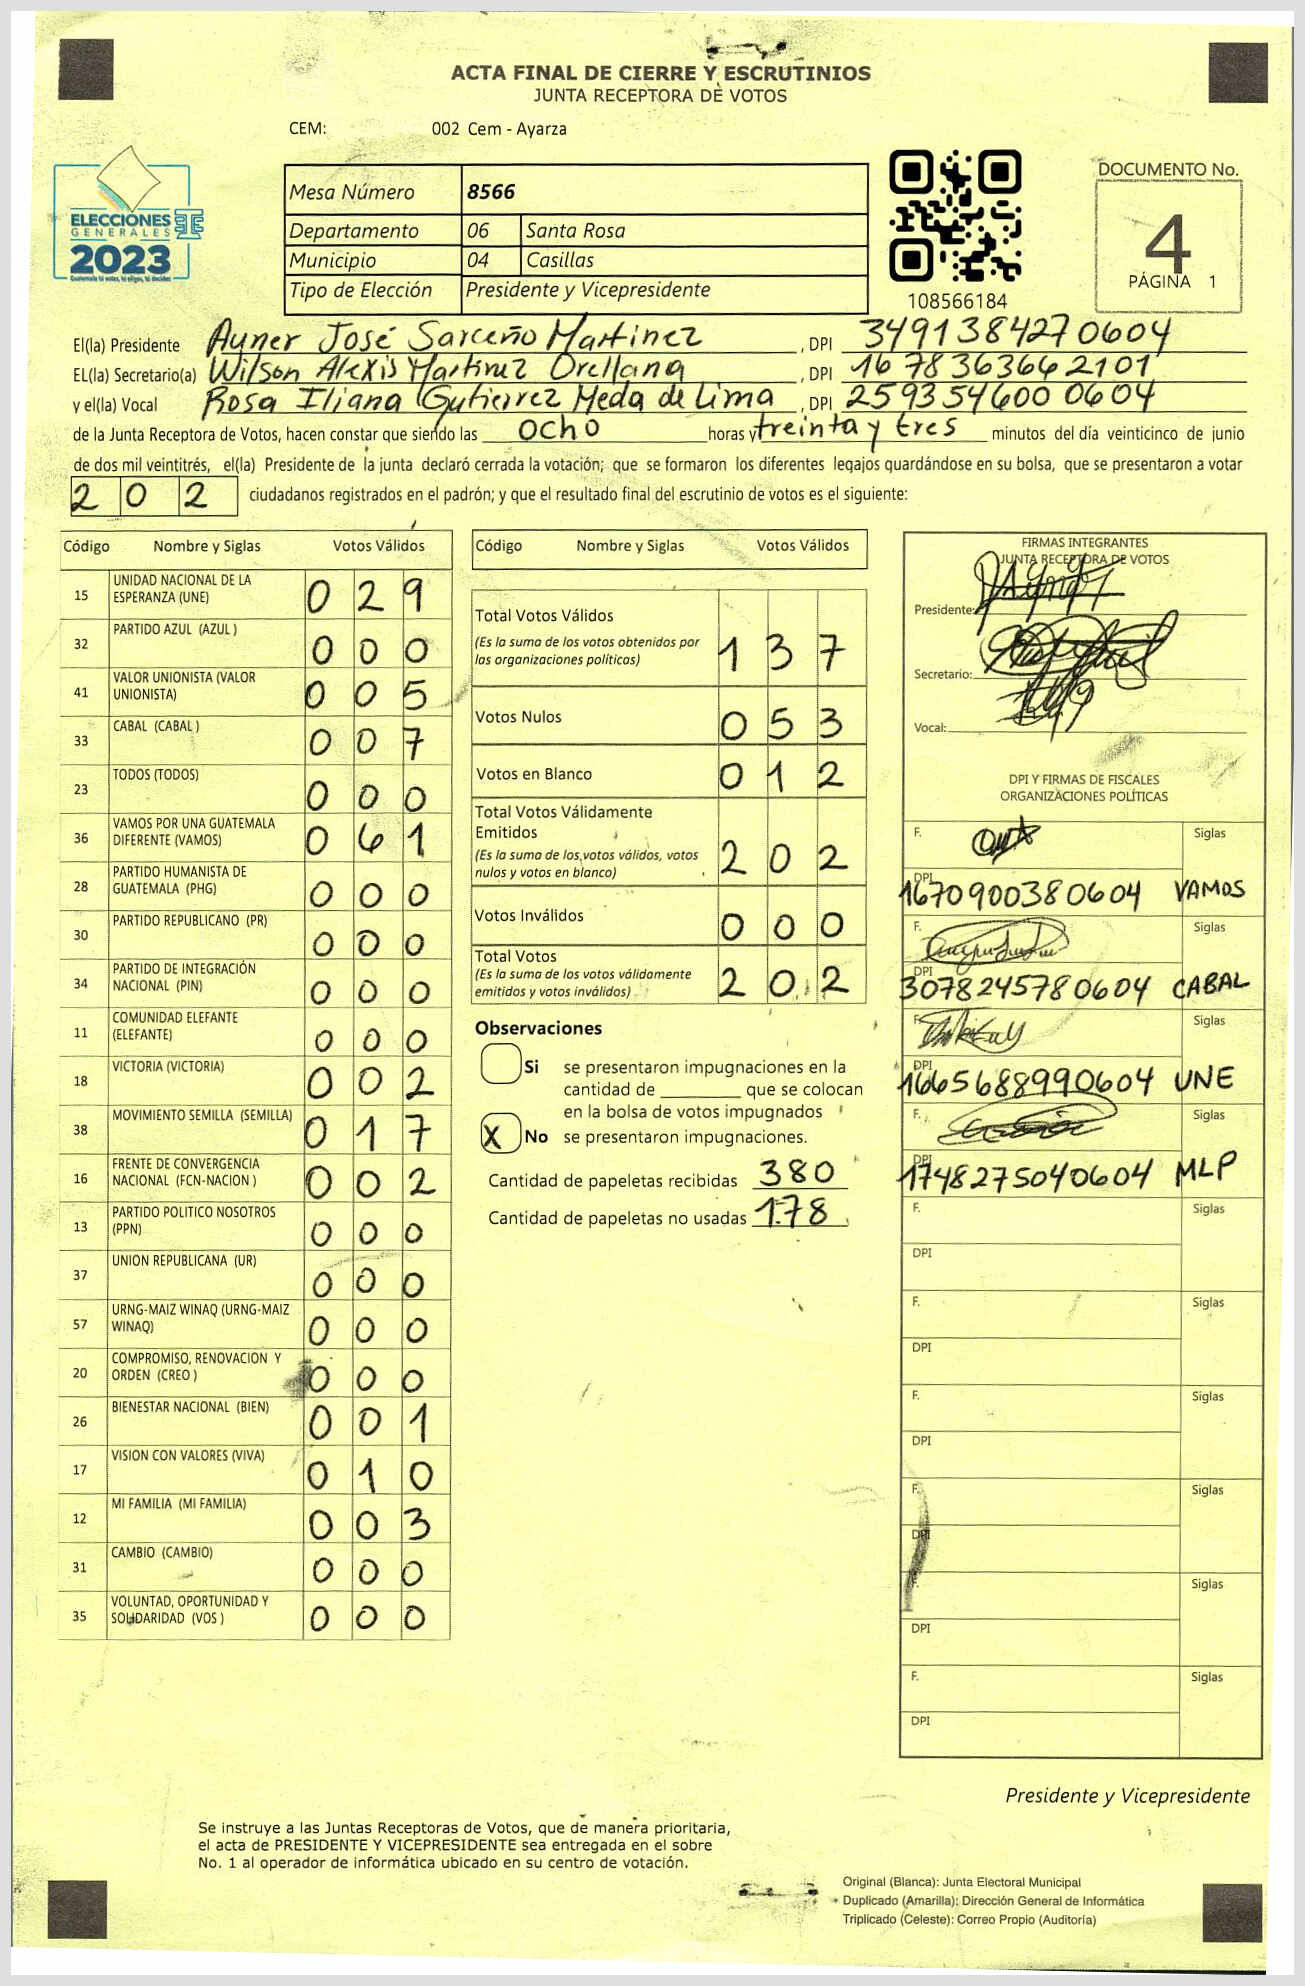 ACTA FINAL DE CIERRE Y ESCRUTINIOS
JUNTA RECEPTORA DE VOTOS
CEM: 002 Cem - Ayarza
ELECCIONES
GENERALES
2023
Mesa Número 8566
Departamento 06 Santa Rosa
Municipio 04 Casillas
Tipo de Elección Presidente y Vicepresidente
108566184
DOCUMENTO No.
4
PÁGINA 1
El(la) Presidente Ayner José Sarceño Martinez , DPI 3491384270604
EL(la) Secretario(a) Wilson Alexis Martinez Orellana , DPI 1678363662101
y el(la) Vocal Rosa Iliana Gutierrez Meda de Lima , DPI 2593546000604
de la Junta Receptora de Votos, hacen constar que siendo las ocho horas y treinta y tres minutos del día veinticinco de junio
de dos mil veintitrés, el(la) Presidente de la junta declaró cerrada la votación; que se formaron los diferentes legajos guardándose en su bolsa, que se presentaron a votar
202 ciudadanos registrados en el padrón; y que el resultado final del escrutinio de votos es el siguiente:
Código Nombre y Siglas Votos Válidos
15 UNIDAD NACIONAL DE LA ESPERANZA (UNE) 029
32 PARTIDO AZUL (AZUL ) 000
41 VALOR UNIONISTA (VALOR UNIONISTA) 005
33 CABAL (CABAL ) 007
23 TODOS (TODOS) 000
36 VAMOS POR UNA GUATEMALA DIFERENTE (VAMOS) 061
28 PARTIDO HUMANISTA DE GUATEMALA (PHG) 000
30 PARTIDO REPUBLICANO (PR) 000
34 PARTIDO DE INTEGRACIÓN NACIONAL (PIN) 000
11 COMUNIDAD ELEFANTE (ELEFANTE) 000
18 VICTORIA (VICTORIA) 002
38 MOVIMIENTO SEMILLA (SEMILLA) 017
16 FRENTE DE CONVERGENCIA NACIONAL (FCN-NACION ) 002
13 PARTIDO POLITICO NOSOTROS (PPN) 000
37 UNION REPUBLICANA (UR) 000
57 URNG-MAIZ WINAQ (URNG-MAIZ WINAQ) 000
20 COMPROMISO, RENOVACION Y ORDEN (CREO ) 000
26 BIENESTAR NACIONAL (BIEN) 001
17 VISION CON VALORES (VIVA) 010
12 MI FAMILIA (MI FAMILIA) 003
31 CAMBIO (CAMBIO) 000
35 VOLUNTAD, OPORTUNIDAD Y SOLIDARIDAD (VOS ) 000
Código Nombre y Siglas Votos Válidos
Total Votos Válidos 137
(Es la suma de los votos obtenidos por
las organizaciones políticas)
Votos Nulos 053
Votos en Blanco 012
Total Votos Válidamente
Emitidos 202
(Es la suma de los votos válidos, votos
nulos y votos en blanco)
Votos Inválidos 000
Total Votos 202
(Es la suma de los votos válidamente
emitidos y votos inválidos)
Observaciones
Si se presentaron impugnaciones en la
cantidad de ________ que se colocan
en la bolsa de votos impugnados
X No se presentaron impugnaciones.
Cantidad de papeletas recibidas 380
Cantidad de papeletas no usadas 178
FIRMAS INTEGRANTES
JUNTA RECEPTORA DE VOTOS
Presidente:
Secretario:
Vocal:
DPI Y FIRMAS DE FISCALES
ORGANIZACIONES POLÍTICAS
F. Siglas
DPI 1670900380604 VAMOS
F. Siglas
DPI 3078245780604 CABAL
F. Siglas
DPI 1665688990604 UNE
F. Siglas
DPI 1748275040604 MLP
F. Siglas
DPI
F. Siglas
DPI
F. Siglas
DPI
F. Siglas
DPI
F. Siglas
DPI
F. Siglas
DPI
Presidente y Vicepresidente
Se instruye a las Juntas Receptoras de Votos, que de manera prioritaria,
el acta de PRESIDENTE Y VICEPRESIDENTE sea entregada en el sobre
No. 1 al operador de informática ubicado en su centro de votación.
Original (Blanca): Junta Electoral Municipal
Duplicado (Amarilla): Dirección General de Informática
Triplicado (Celeste): Correo Propio (Auditoría)